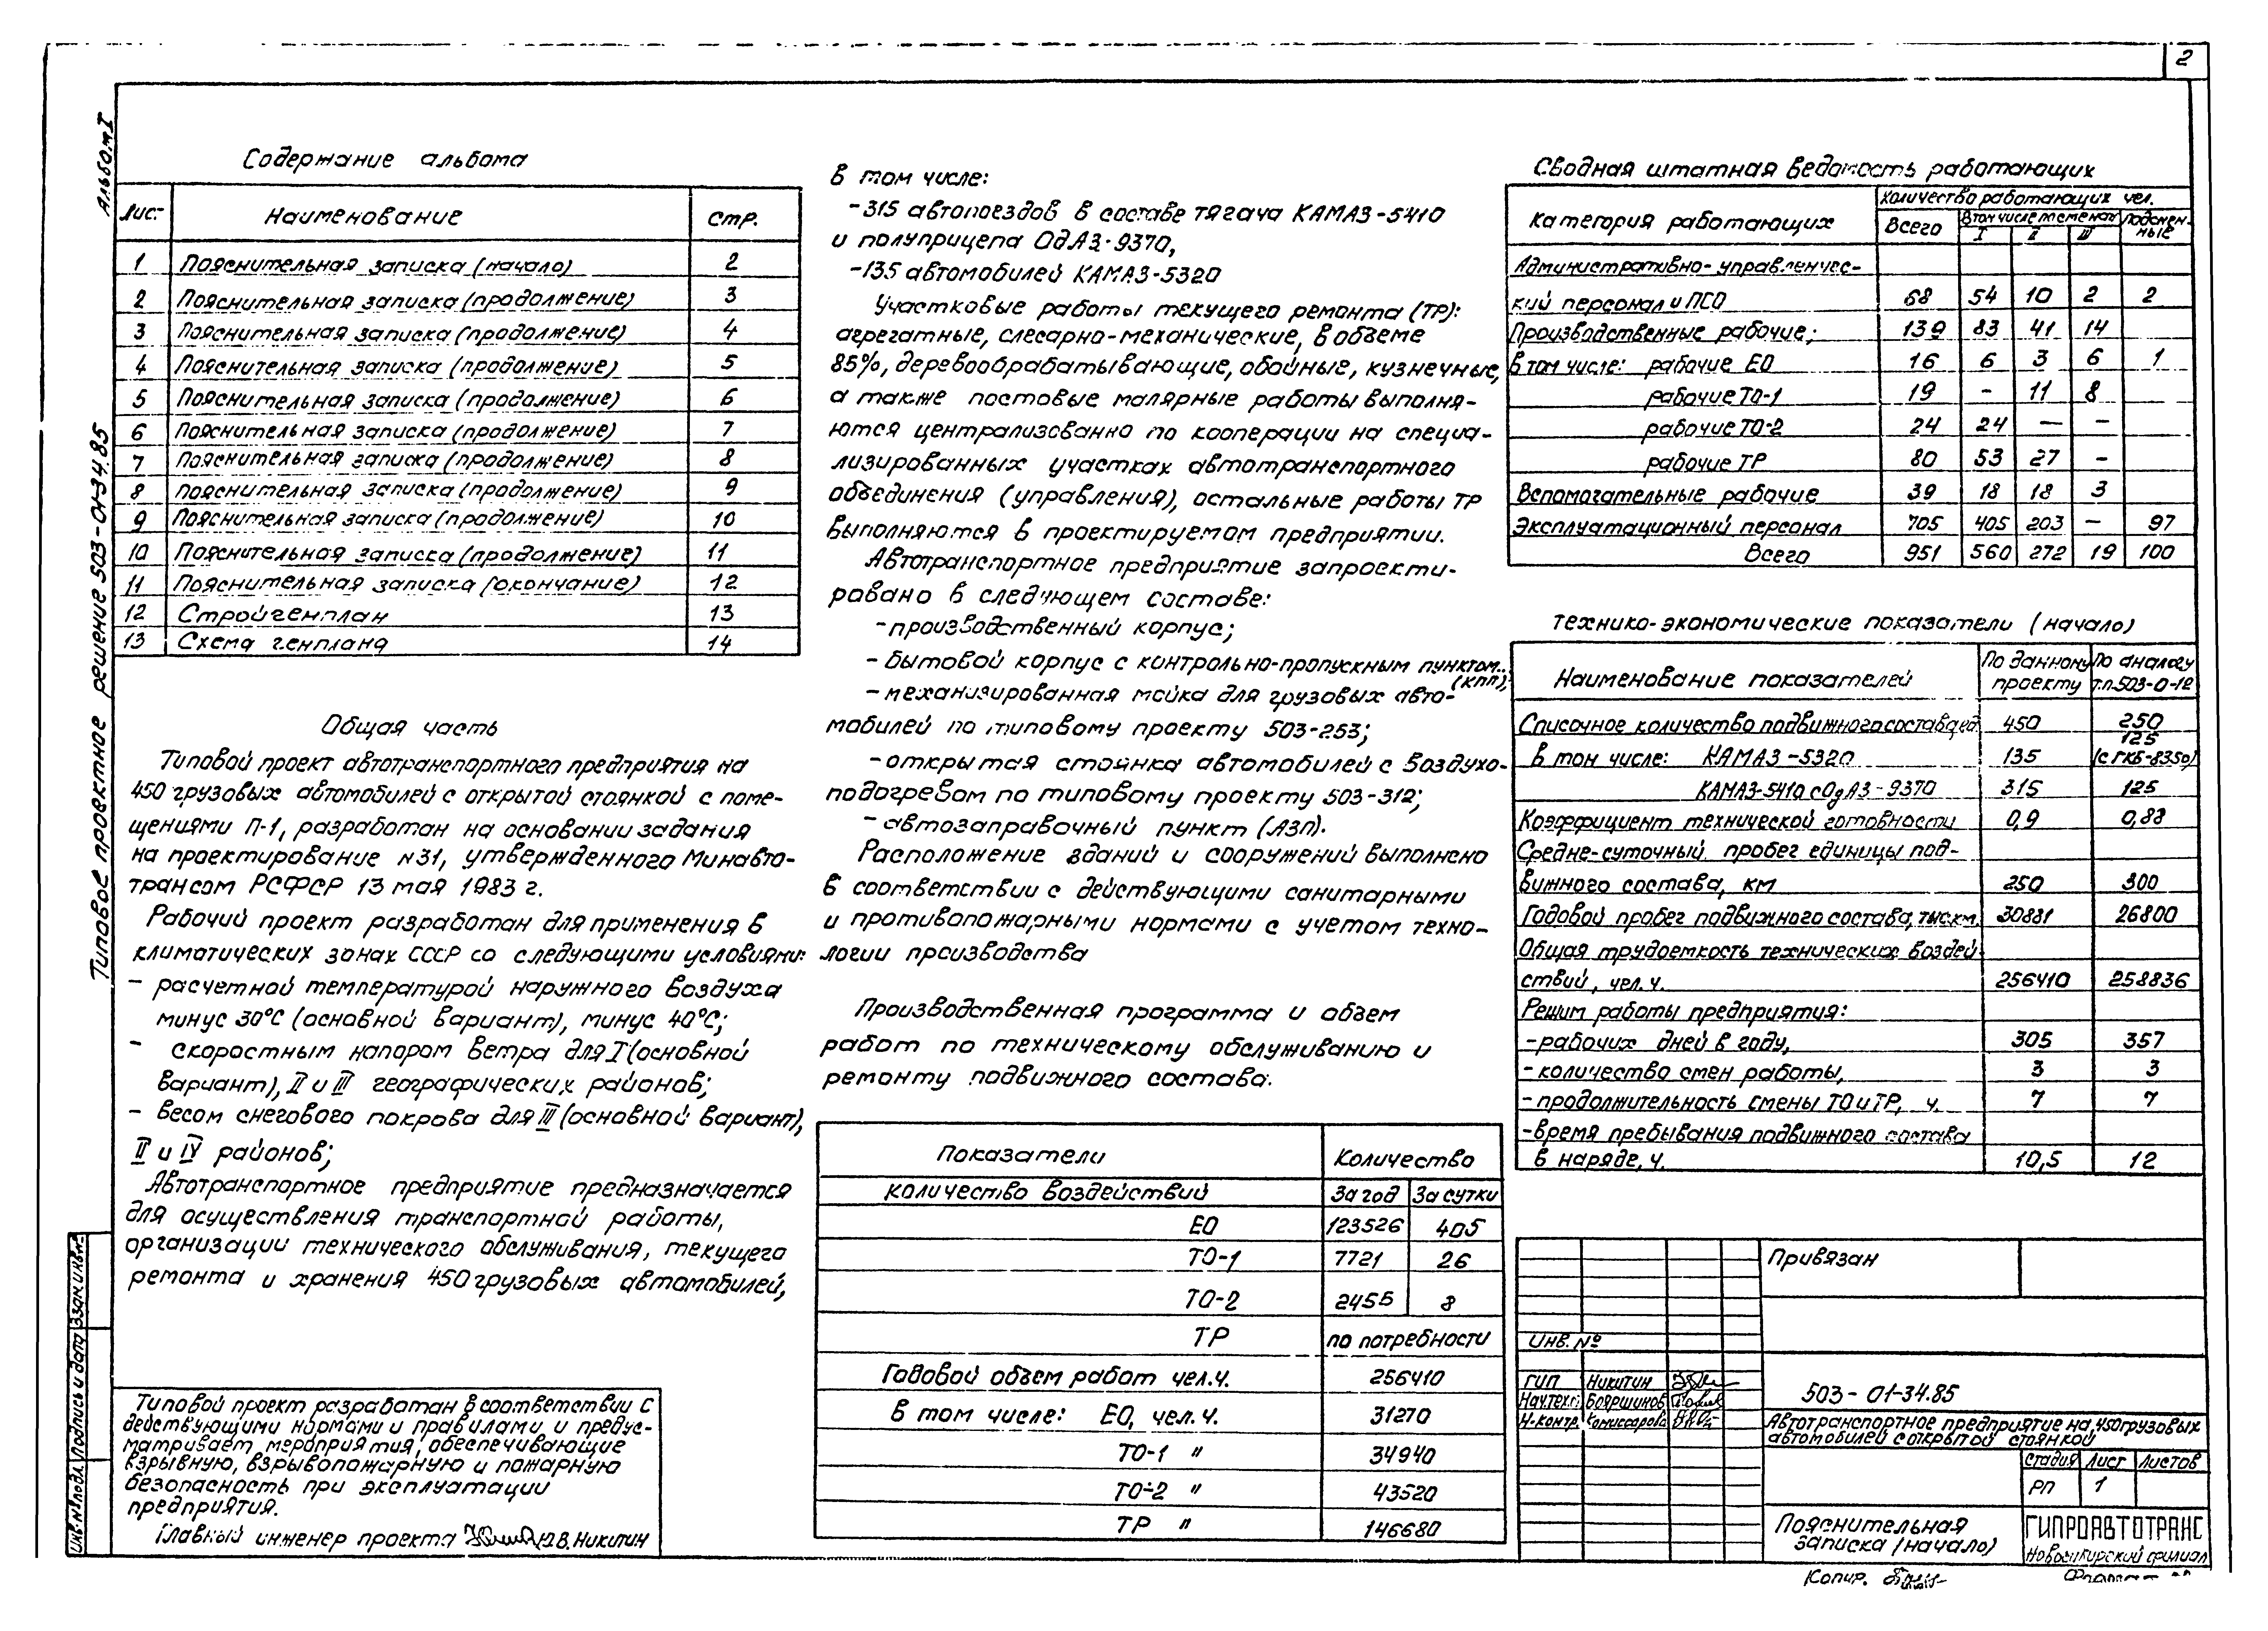 2
Альбом I
Типовое проектное решение 503-01-34.85
Содержание альбома
Лис. Наименование стр.
1 Пояснительная записка (начало) 2
2 Пояснительная записка (продолжение) 3
3 Пояснительная записка (продолжение) 4
4 Пояснительная записка (продолжение) 5
5 Пояснительная записка (продолжение) 6
6 Пояснительная записка (продолжение) 7
7 Пояснительная записка (продолжение) 8
8 Пояснительная записка (продолжение) 9
9 Пояснительная записка (продолжение) 10
10 Пояснительная записка (продолжение) 11
11 Пояснительная записка (окончание) 12
12 Стройгенплан 13
13 Схема генплана 14
Общая часть
Типовой проект автотранспортного предприятия на
450 грузовых автомобилей с открытой стоянкой с поме-
щениями П-1, разработан на основании задания
на проектирование N31, утвержденного Минавто-
трансом РСФСР 13 мая 1983 г.
Рабочий проект разработан для применения в
климатических зонах СССР со следующими условиями:
- расчетной температурой наружного воздуха
минус 30°С (основной вариант), минус 40°С;
- скоростным напором ветра для I (основной
вариант), II и III географических районов;
- весом снегового покрова для III (основной вариант),
II и IV районов;
Автотранспортное предприятие предназначается
для осуществления транспортной работы,
организации технического обслуживания, текущего
ремонта и хранения 450 грузовых автомобилей,
Типовой проект разработан в соответствии с
действующими нормами и правилами и предус-
матривает мероприятия, обеспечивающие
взрывную, взрывопожарную и пожарную
безопасность при эксплуатации
предприятия.
Главный инженер проекта Ю.В. Никитин
Инв. № подл. Подпись и дата Взам. инв. №
в том числе:
-315 автопоездов в составе тягача КАМАЗ-5410
и полуприцепа ОдАЗ-9370,
-135 автомобилей КАМАЗ-5320
Участковые работы текущего ремонта (ТР):
агрегатные, слесарно-механические, в объеме
85%, деревообрабатывающие, обойные, кузнечные,
а также постовые малярные работы выполня-
ются централизованно по кооперации на специа-
лизированных участках автотранспортного
объединения (управления), остальные работы ТР
выполняются в проектируемом предприятии.
Автотранспортное предприятие запроекти-
ровано в следующем составе:
- производственный корпус;
- бытовой корпус с контрольно-пропускным пунктом
(КПП);
- механизированная мойка для грузовых авто-
мобилей по типовому проекту 503-253;
- открытая стоянка автомобилей с воздухо-
подогревом по типовому проекту 503-312;
- автозаправочный пункт (АЗП).
Расположение зданий и сооружений выполнено
в соответствии с действующими санитарными
и противопожарными нормами с учетом техно-
логии производства
Производственная программа и объем
работ по техническому обслуживанию и
ремонту подвижного состава.
Показатели Количество
количество воздействий За год За сутки
ЕО 123526 405
ТО-1 7721 26
ТО-2 2455 8
ТР по потребности
Годовой объем работ чел.ч. 256410
в том числе: ЕО, чел.ч. 31270
ТО-1 " 34940
ТО-2 " 43520
ТР " 146680
Сводная штатная ведомость работающих
категория работающих количество работающих чел.
Всего В том числе по сменам подмен-
I II III ные
Административно-управленчес-
кий персонал и ПСО 68 54 10 2 2
Производственные рабочие; 139 83 41 14
В том числе: рабочие ЕО 16 6 3 6 1
рабочие ТО-1 19 - 11 8
рабочие ТО-2 24 24 — -
рабочие ТР 80 53 27 -
Вспомогательные рабочие 39 18 18 3
Эксплуатационный персонал 705 405 203 — 97
Всего 951 560 272 19 100
Технико-экономические показатели (начало)
Наименование показателей По данному проекту По аналогу т.п. 503-0-12
Списочное количество подвижного состава, ед. 450 250
в том числе: КАМАЗ-5320 135 125 (с ГКБ-8350)
КАМАЗ-5410 с ОдАЗ-9370 315 125
Коэффициент технической готовности 0,9 0,88
Средне-суточный пробег единицы под-
вижного состава, км 250 300
Годовой пробег подвижного состава, тыс.км. 30881 26800
Общая трудоемкость технических воздей-
ствий, чел.ч. 256410 258836
Режим работы предприятия:
- рабочих дней в году, 305 357
- количество смен работы, 3 3
- продолжительность смены ТО и ТР, ч. 7 7
- время пребывания подвижного состава
в наряде, ч. 10,5 12
Привязан
Инв. №
ГИП Никитин
Нач.тех. Бояршинов
Н.контр. Комиссарова
503-01-34.85
Автотранспортное предприятие на 450 грузовых
автомобилей с открытой стоянкой
стадия Лист Листов
РП 1
Пояснительная
записка (начало)
ГИПРОАВТОТРАНС
Новосибирский филиал
Копир.